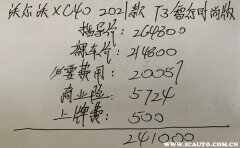 沃尔沃XC40 2021款 T3智行时尚版
指导价: 264800
裸车价: 214800
必要费用: 20057
商业险: 5724
上牌费: 500
241000
WWW.ICAUTO.COM.CN